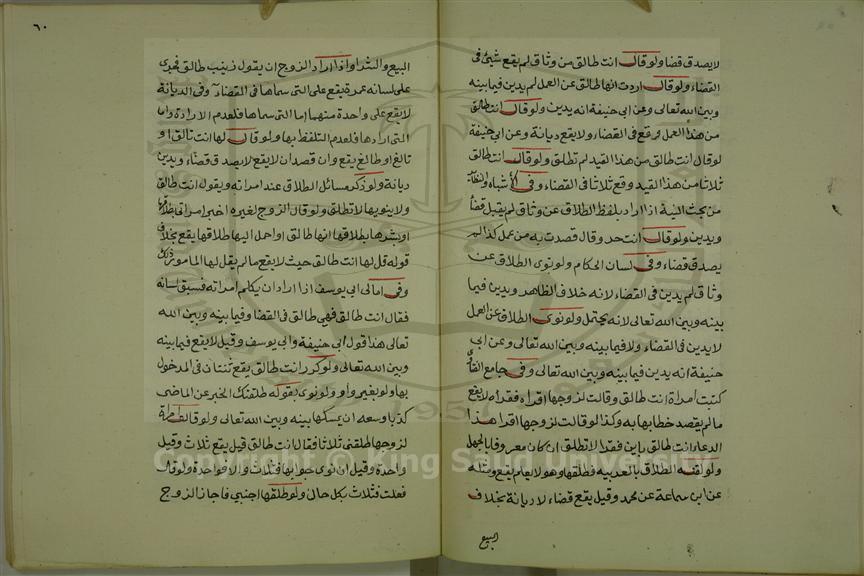 لا يصدق قضا ولو قال انت طالق من وثاق لم يقع شيئ فى
القضاء ولو قال اردت انها طالق عن العمل لم يدين فيما بينه
وبين الله تعالى وعن ابى حنيفة انه يدين ولو قال انت طالق
من هذا العمل وقع فى القضاء ولا يقع ديانة وعن ابى حنيفة
لو قال انت طالق من هذا القيد لم تطلق ولو قال انت طالق
ثلاثا من هذا القيد وقع ثلاثا فى القضاء وفى الاشباه والنظائر
من بحث النية اذا اراد بلفظ الطلاق عن وثاق لم يقبل قضأ
ويدين ولو قال انت حد وقال قصدت به من عمل كذا لم
يصدق قضاء وفى لسان الحكام ولو نوى الطلاق عن
وثاق لم يدين فى القضاء لانه خلاف الظاهر ويدين فيما
بينه وبين الله تعالى لانه يحتمل ولو نوى الطلاق عن العمل
لا يدين فى القضاء ولا فيما بينه وبين الله تعالى وعن ابى
حنيفة انه يدين فيما بينه وبين الله تعالى وفى جامع
كتبت امرأة انت طالق وقالت لزوجها اقراء فقراه لا يقع
مالم يقصد خطابها به وكذا لو قالت لزوجها اقرا هذا
الدعا انت طالق باين فقرا لا تطلق ان كان معروفا بالجهل
ولو لقنه الطلاق بالعربيه فطلقها وهو لا يعلم يقع ومثله
عن ابن سماعة عن محمد وقيل يقع قضاء لا ديانة بخلاف
البيع
٦٠
البيع والشرا واذا اراد الزوج ان يقول زينب طالق فجرى
على لسانه عمرة يقع على التى سماها فى القضاء وفى الديانة
لا يقع على واحدة منهما اما التى سماها فلعدم الارادة واما
التى ارادها فلعدم التلفظ بها ولو قال لها انت تالق او
تالغ او طالغ يقع وان قصد ان لا يقع لا يصدق قضاء ويدين
ديانة ولو ذكر مسائل الطلاق عند امراته ويقول انت طالق
ولا ينوى بها لا تطلق ولو قال الزوج لغيره اخبر امراتى بطلاقها
او بشرها بطلاقها انها طالق او احمل اليها طلاقها يقع بخلاف
قوله قل لها انت طالق حيث لا يقع مالم يقل لها المامور ذلك
وفى امالى ابى يوسف اذا اراد ان يكلم امراته فسبق لسانه
فقال انت طالق فهى طالق فى القضا وفيما بينه وبين الله
تعالى هذا قول ابى حنيفة وابى يوسف وقيل لا يقع فيما بينه
وبين الله تعالى ولو كرر انت طالق يقع ثنتان فى المدخول
بها ولو بغير واو ولو نوى بقوله طلقتك الخبر عن الماضى
كذبا وسعه ان يمسكها بينه وبين الله تعالى ولو قالت امراة
لزوجها طلقنى ثلاثا فقال انت طالق قيل يقع ثلاث وقيل
واحدة وقيل ان نوى جوابها فثلاث والا فواحدة ولو قال
فعلت فثلاث بكل حال ولو طلقها اجنبي فاجاز الزوج
Copyright © King Saud University